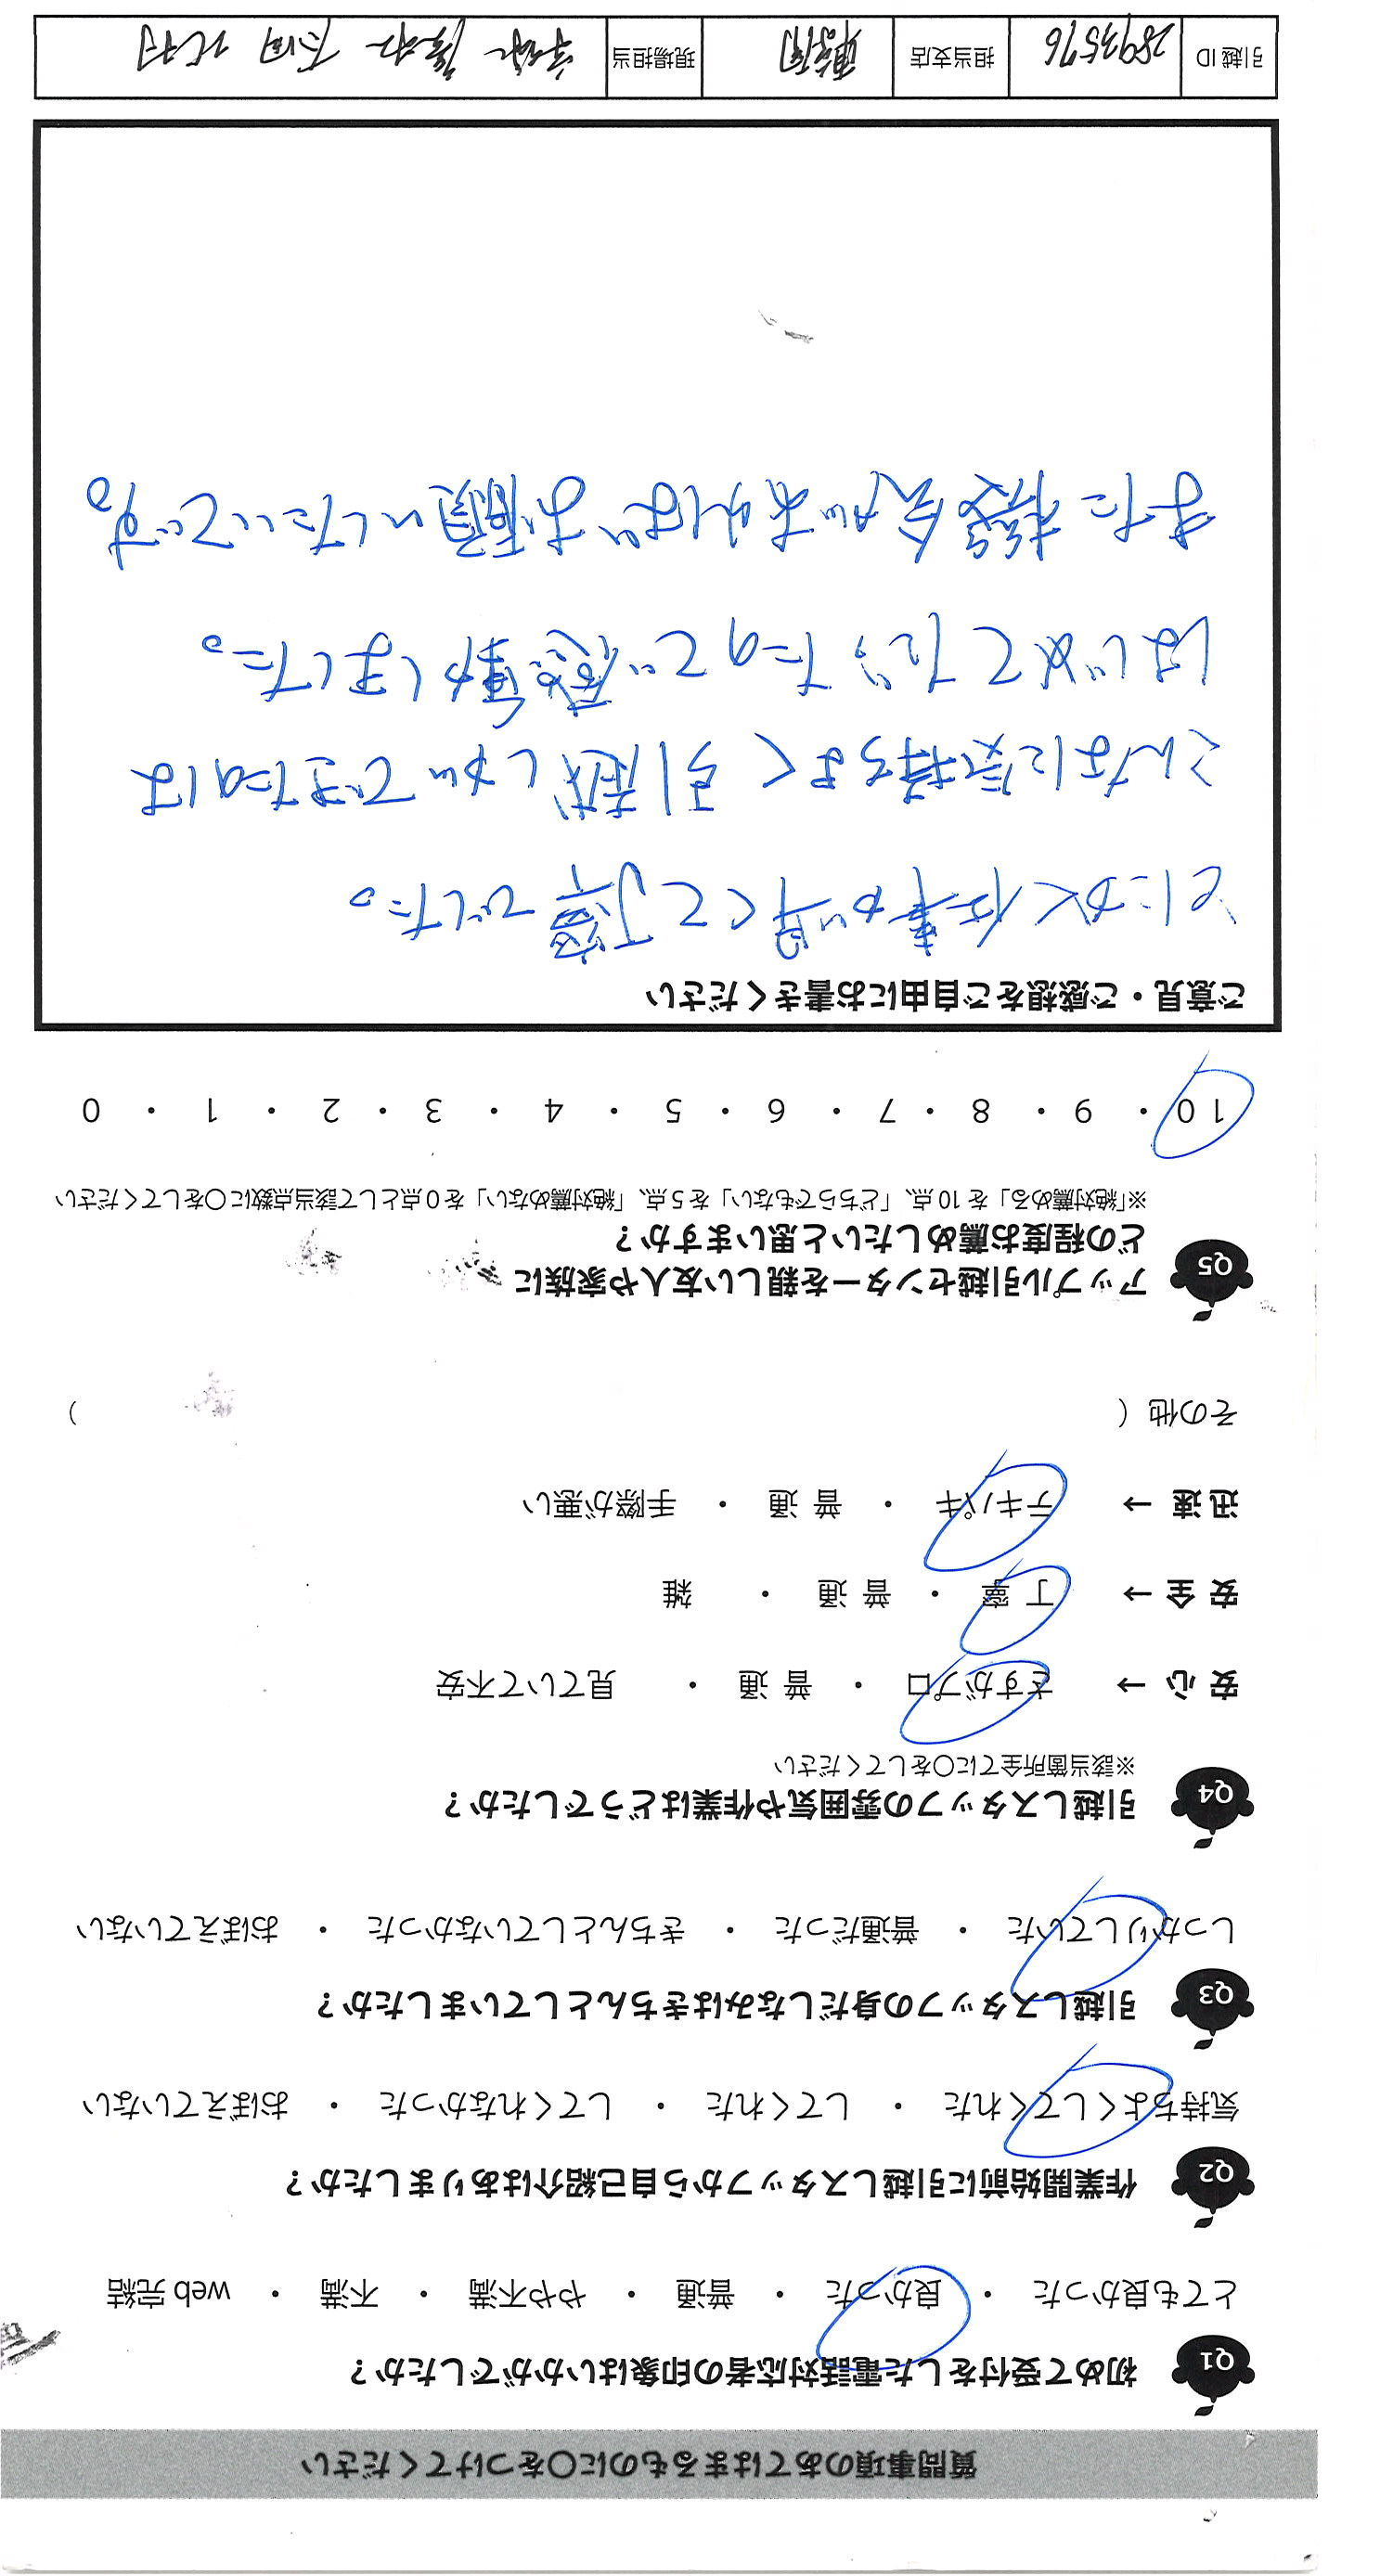 質問事項のあてはまるものに〇をつけてください
Q1 初めて受付をした電話対応者の印象はいかがでしたか？
とても良かった ・ 良かった ・ 普通 ・ やや不満 ・ 不満 ・ web 完結
Q2 作業開始前に引越しスタッフから自己紹介はありましたか？
気持ちよくしてくれた ・ してくれた ・ してくれなかった ・ おぼえていない
Q3 引越しスタッフの身だしなみはきちんとしていましたか？
しっかりしていた ・ 普通だった ・ きちんとしていなかった ・ おぼえていない
Q4 引越しスタッフの雰囲気や作業はどうでしたか？
※該当箇所全てに〇をしてください
安 心 → さすがプロ ・ 普 通 ・ 見ていて不安
安 全 → 丁 寧 ・ 普 通 ・ 雑
迅 速 → テキパキ ・ 普 通 ・ 手際が悪い
その他（ ）
Q5 アップル引越センターを親しい友人や家族に
どの程度お薦めしたいと思いますか？
※「絶対薦める」を 10 点、「どちらでもない」を 5 点、「絶対薦めない」を 0 点として該当点数に〇をしてください
10 ・ 9 ・ 8 ・ 7 ・ 6 ・ 5 ・ 4 ・ 3 ・ 2 ・ 1 ・ 0
ご意見・ご感想をご自由にお書きください
とにかく仕事が早くて丁寧でした。
こんなに気持ちよく引越しができたのは
はじめてだったので感動しました。
また機会があればお願いしたいです。
引越 ID 2893576 担当支店 現場担当